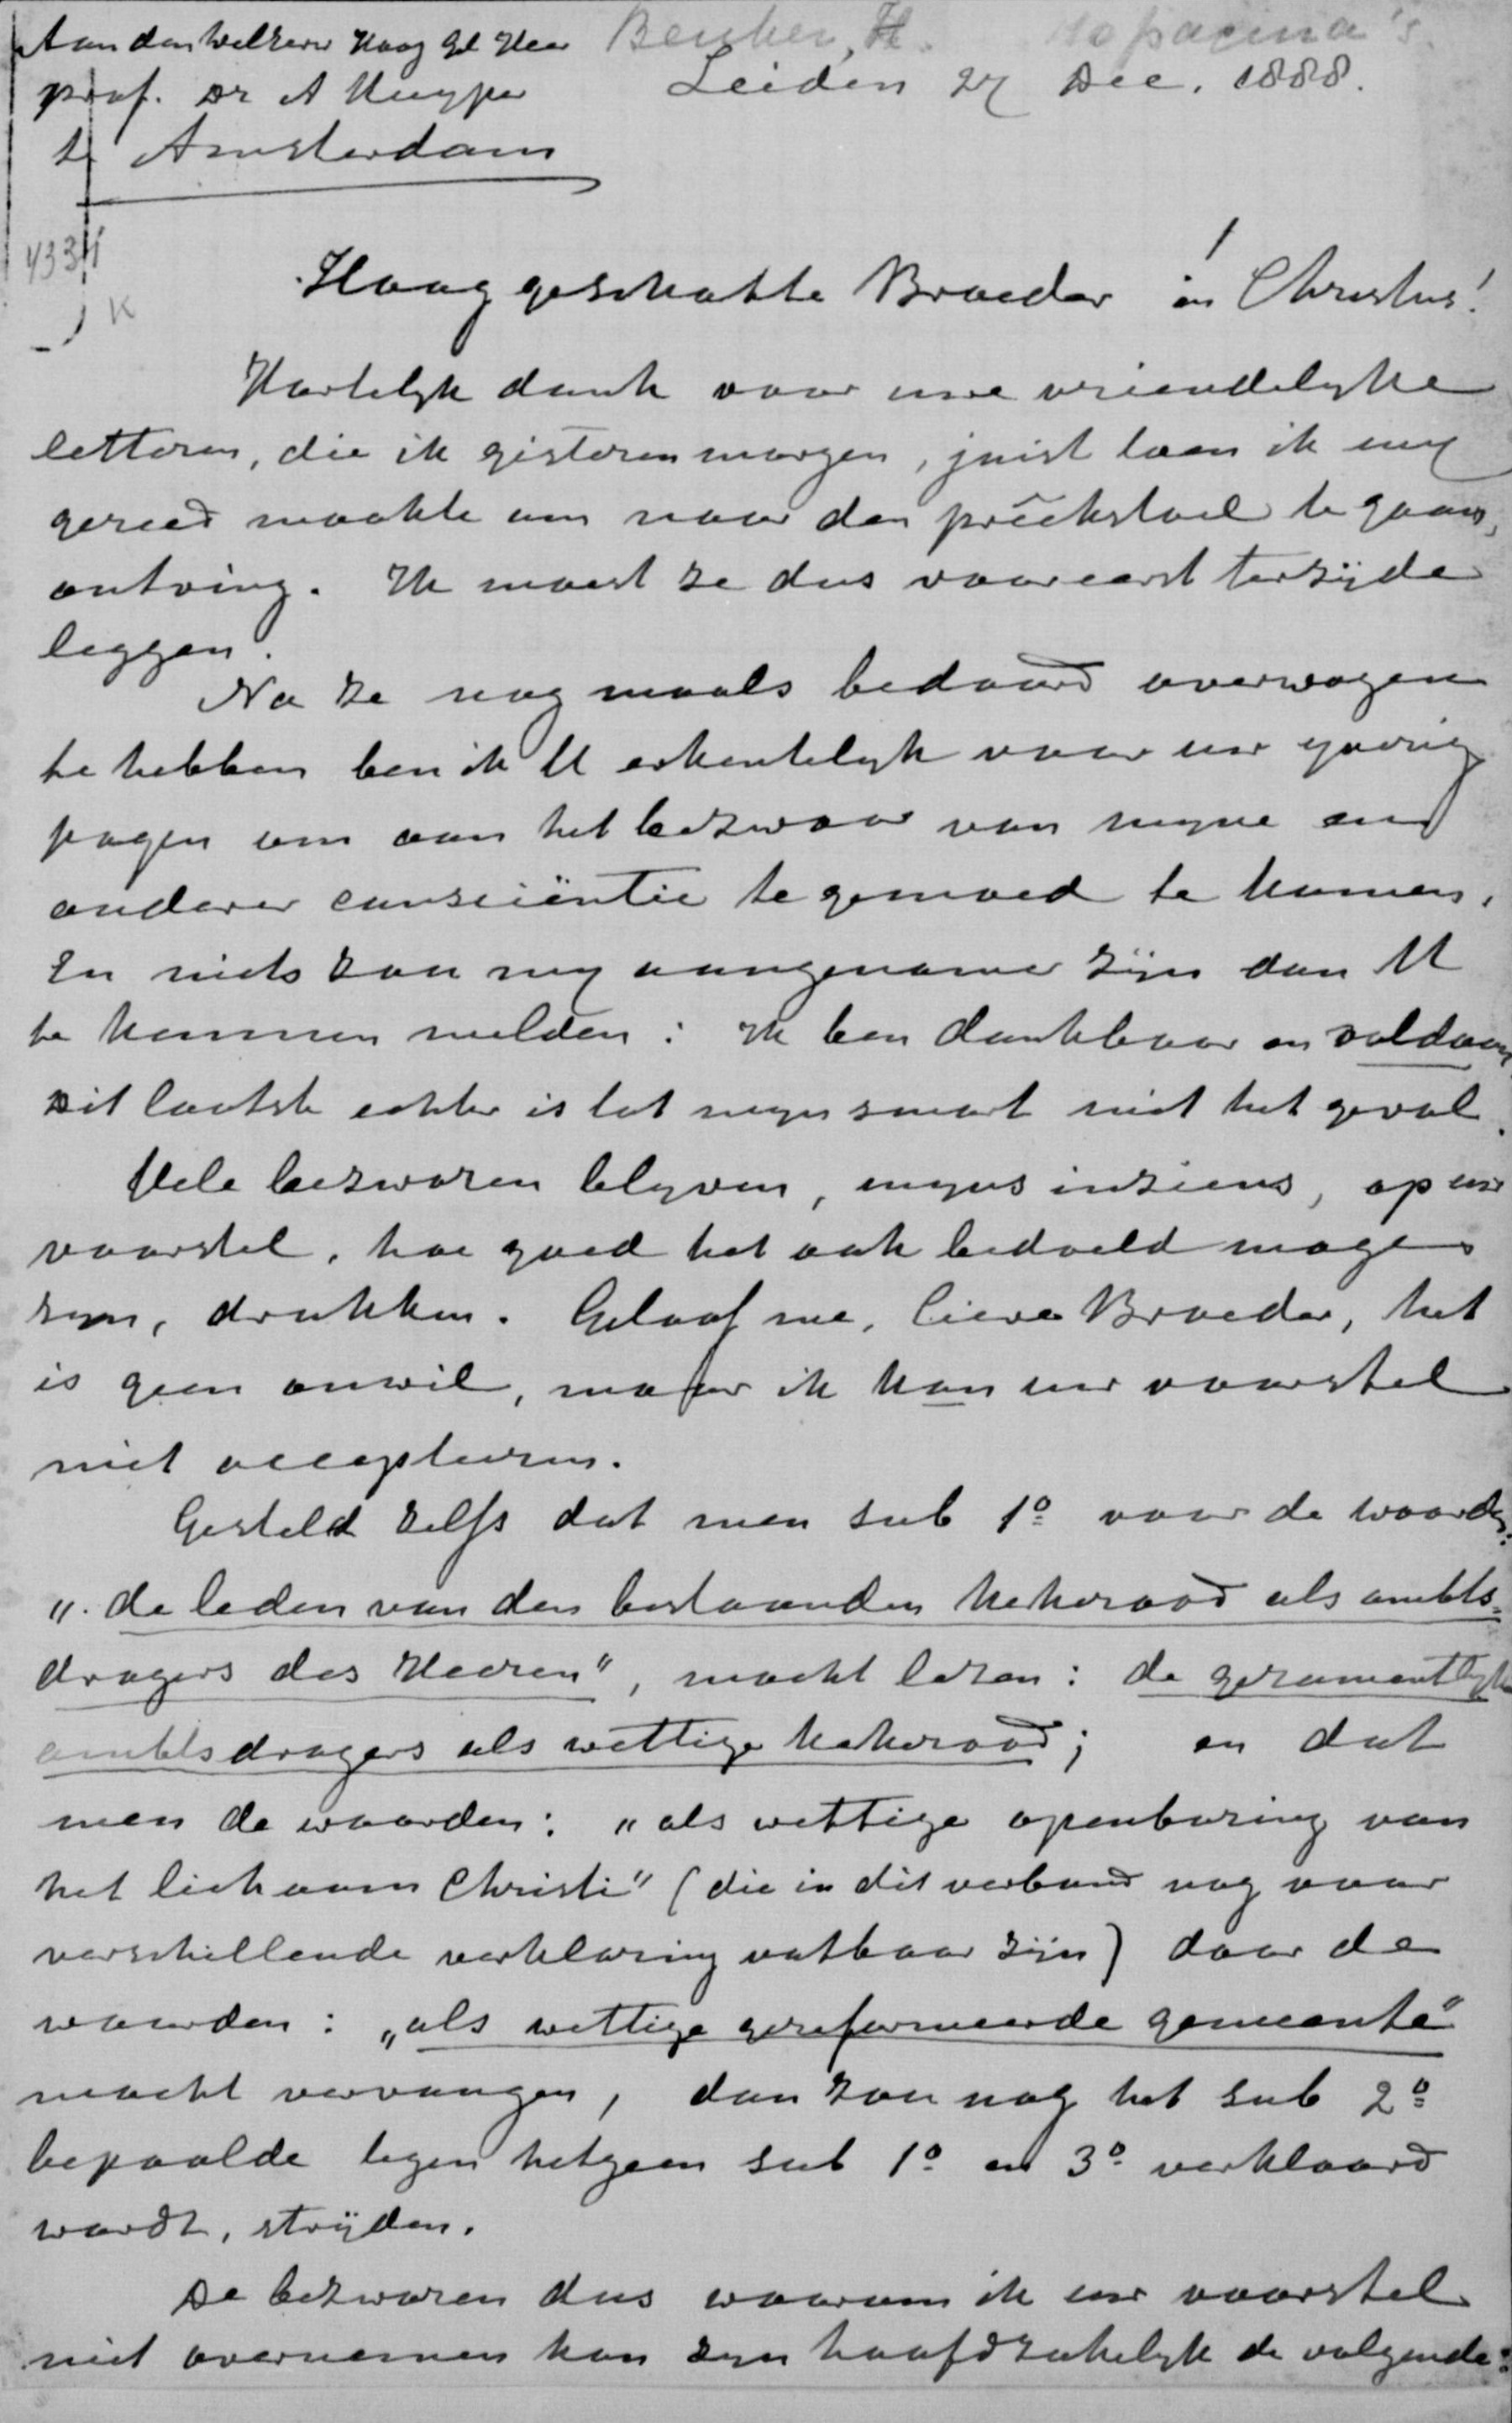 Aan den Weleerw Hoog Gel Heer
prof. Dr A Kuyper
te Amsterdam
Beuker, H. 10 pagina's.
Leiden 27 Dec. 1888.
4334
K
Hooggeschatte Broeder in Christus!
Hartelyk dank voor uwe vriendelyke
letteren, die ik gisteren morgen, juist toen ik my
gereed maakte om naar den preekstoel te gaan,
ontving. Ik moest ze dus vooreerst terzijde
leggen.
Na ze nogmaals bedaard overwogen
te hebben ben ik U erkentelyk voor uw yverig
pogen om aan het bezwaar van myne en
anderer consciëntie te gemoed te komen.
En niets zou my aangenamer zijn dan U
te kunnen melden: Ik ben dankbaar en voldaan
Dit laatste echter is tot myn smart niet het geval.
Vele bezwaren blyven, myns inziens, op uw
voorstel, hoe goed het ook bedoeld moge
zyn, drukken. Geloof me, lieve Broeder, het
is geen onwil, maar ik kan uw voorstel
niet accepteeren.
Gesteld zelfs dat men sub 1º voor de woorden:
"de leden van den bestaanden kekeraad als ambts=
dragers des Heeren", mocht lezen: de gezamentlyke
ambtsdragers als wettige kekeraad; en dat
men de woorden: "als wettige openbaring van
het lichaam Christi" (die in dit verband nog voor
verschillende verklaring vatbaar zijn) door de
woorden: "als wettige gereformeerde gemeente"
mocht vervangen, dan zou nog het sub 2º
bepaalde tegen hetgeen sub 1º en 3º verklaard
wordt, strijden.
De bezwaren dus waarom ik uw voorstel
niet overnemen kan zyn hoofdzakelyk de volgende: